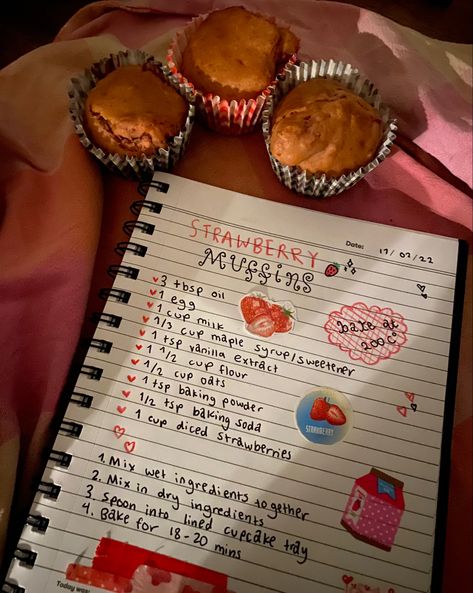 Date: 17/02/22
STRAWBERRY
MUFFINS
3 tbsp oil
1 egg
1 cup milk
1/3 cup maple syrup/sweetener
1 tsp vanilla extract
1 1/2 cup flour
1/2 cup oats
1 tsp baking powder
1/2 tsp baking soda
1 cup diced strawberries
bake at
200C
STRAWBERRY
1. Mix wet ingredients together
2. Mix in dry ingredients
3. Spoon into lined cupcake tray
4. Bake for 18-20 mins
Today was